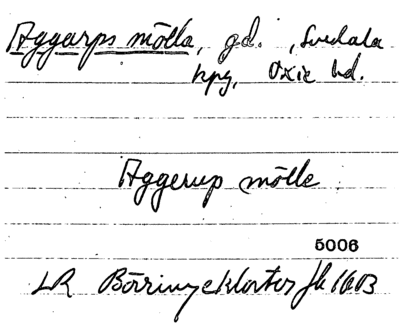 Aggarps mölla, gd., Svedala
kpg, Oxie hd.
Aggerup mölle
5006
LR Börringekloster jb 1603